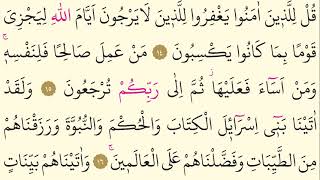 قُلْ لِلَّذٖينَ اٰمَنُوا يَغْفِرُوا لِلَّذٖينَ لَا يَرْجُونَ اَيَّامَ اللّٰهِ لِيَجْزِيَ
قَوْمًا بِمَا كَانُوا يَكْسِبُونَ ﴿١٤﴾ مَنْ عَمِلَ صَالِحًا فَلِنَفْسِهٖۚ
وَمَنْ اَسَٓاءَ فَعَلَيْهَاۘ ثُمَّ اِلٰى رَبِّكُمْ تُرْجَعُونَ ﴿١٥﴾ وَلَقَدْ
اٰتَيْنَا بَنٖٓي اِسْرَٓائٖلَ الْكِتَابَ وَالْحُكْمَ وَالنُّبُوَّةَ وَرَزَقْنَاهُمْ
مِنَ الطَّيِّبَاتِ وَفَضَّلْنَاهُمْ عَلَى الْعَالَمٖينَۚ ﴿١٦﴾ وَاٰتَيْنَاهُمْ بَيِّنَاتٍ